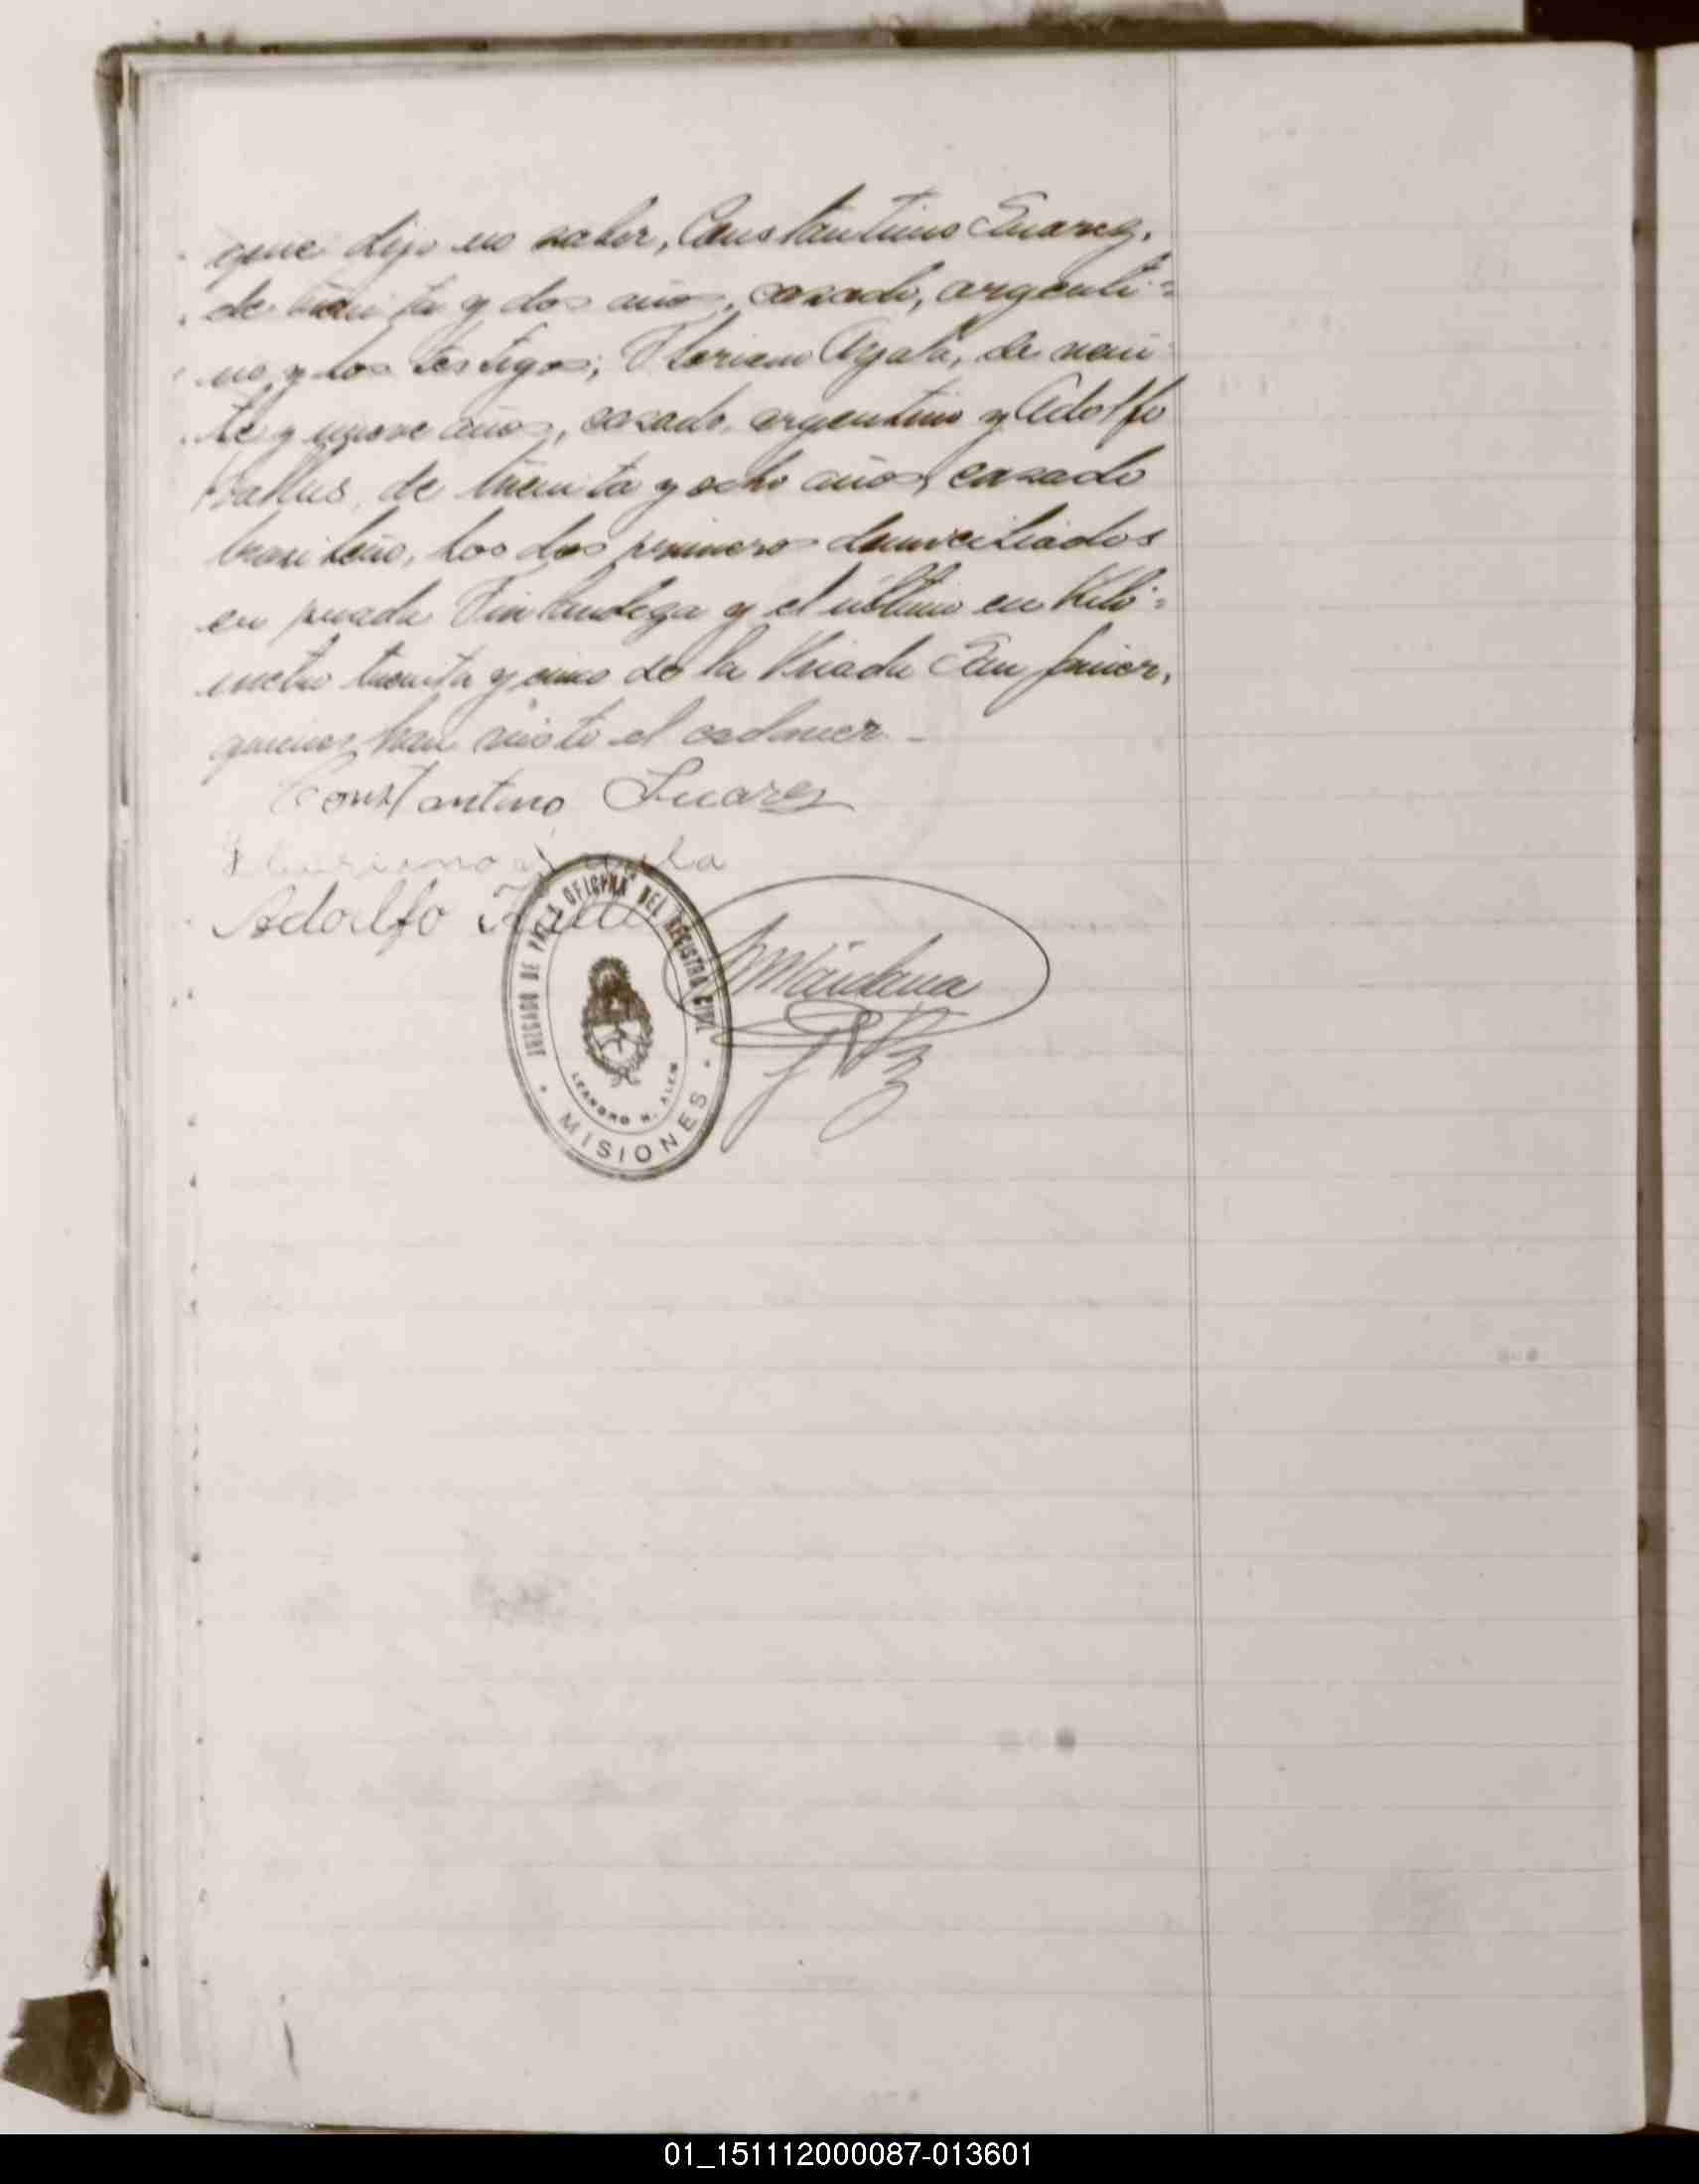 que dijo no saber, Constantino Suarez,
de treinta y dos años, casado, argenti=
no, y los testigos; Floriano Ayala, de vein
te y nueve años, casado, argentino y Adolfo
de treinta y ocho años, casado
brasileño, los dos primeros domiciliados
en picada Finlandesa y el último en Kiló=
metro treinta y cinco de la Picada San Javier,
quienes han visto el cadaver.-
Constantino Suarez
Floriano Ayala
Adolfo
JUZGADO DE PAZ & OFICINA DEL REGISTRO CIVIL
LEANDRO N. ALEM
MISIONES
01_151112000087-013601